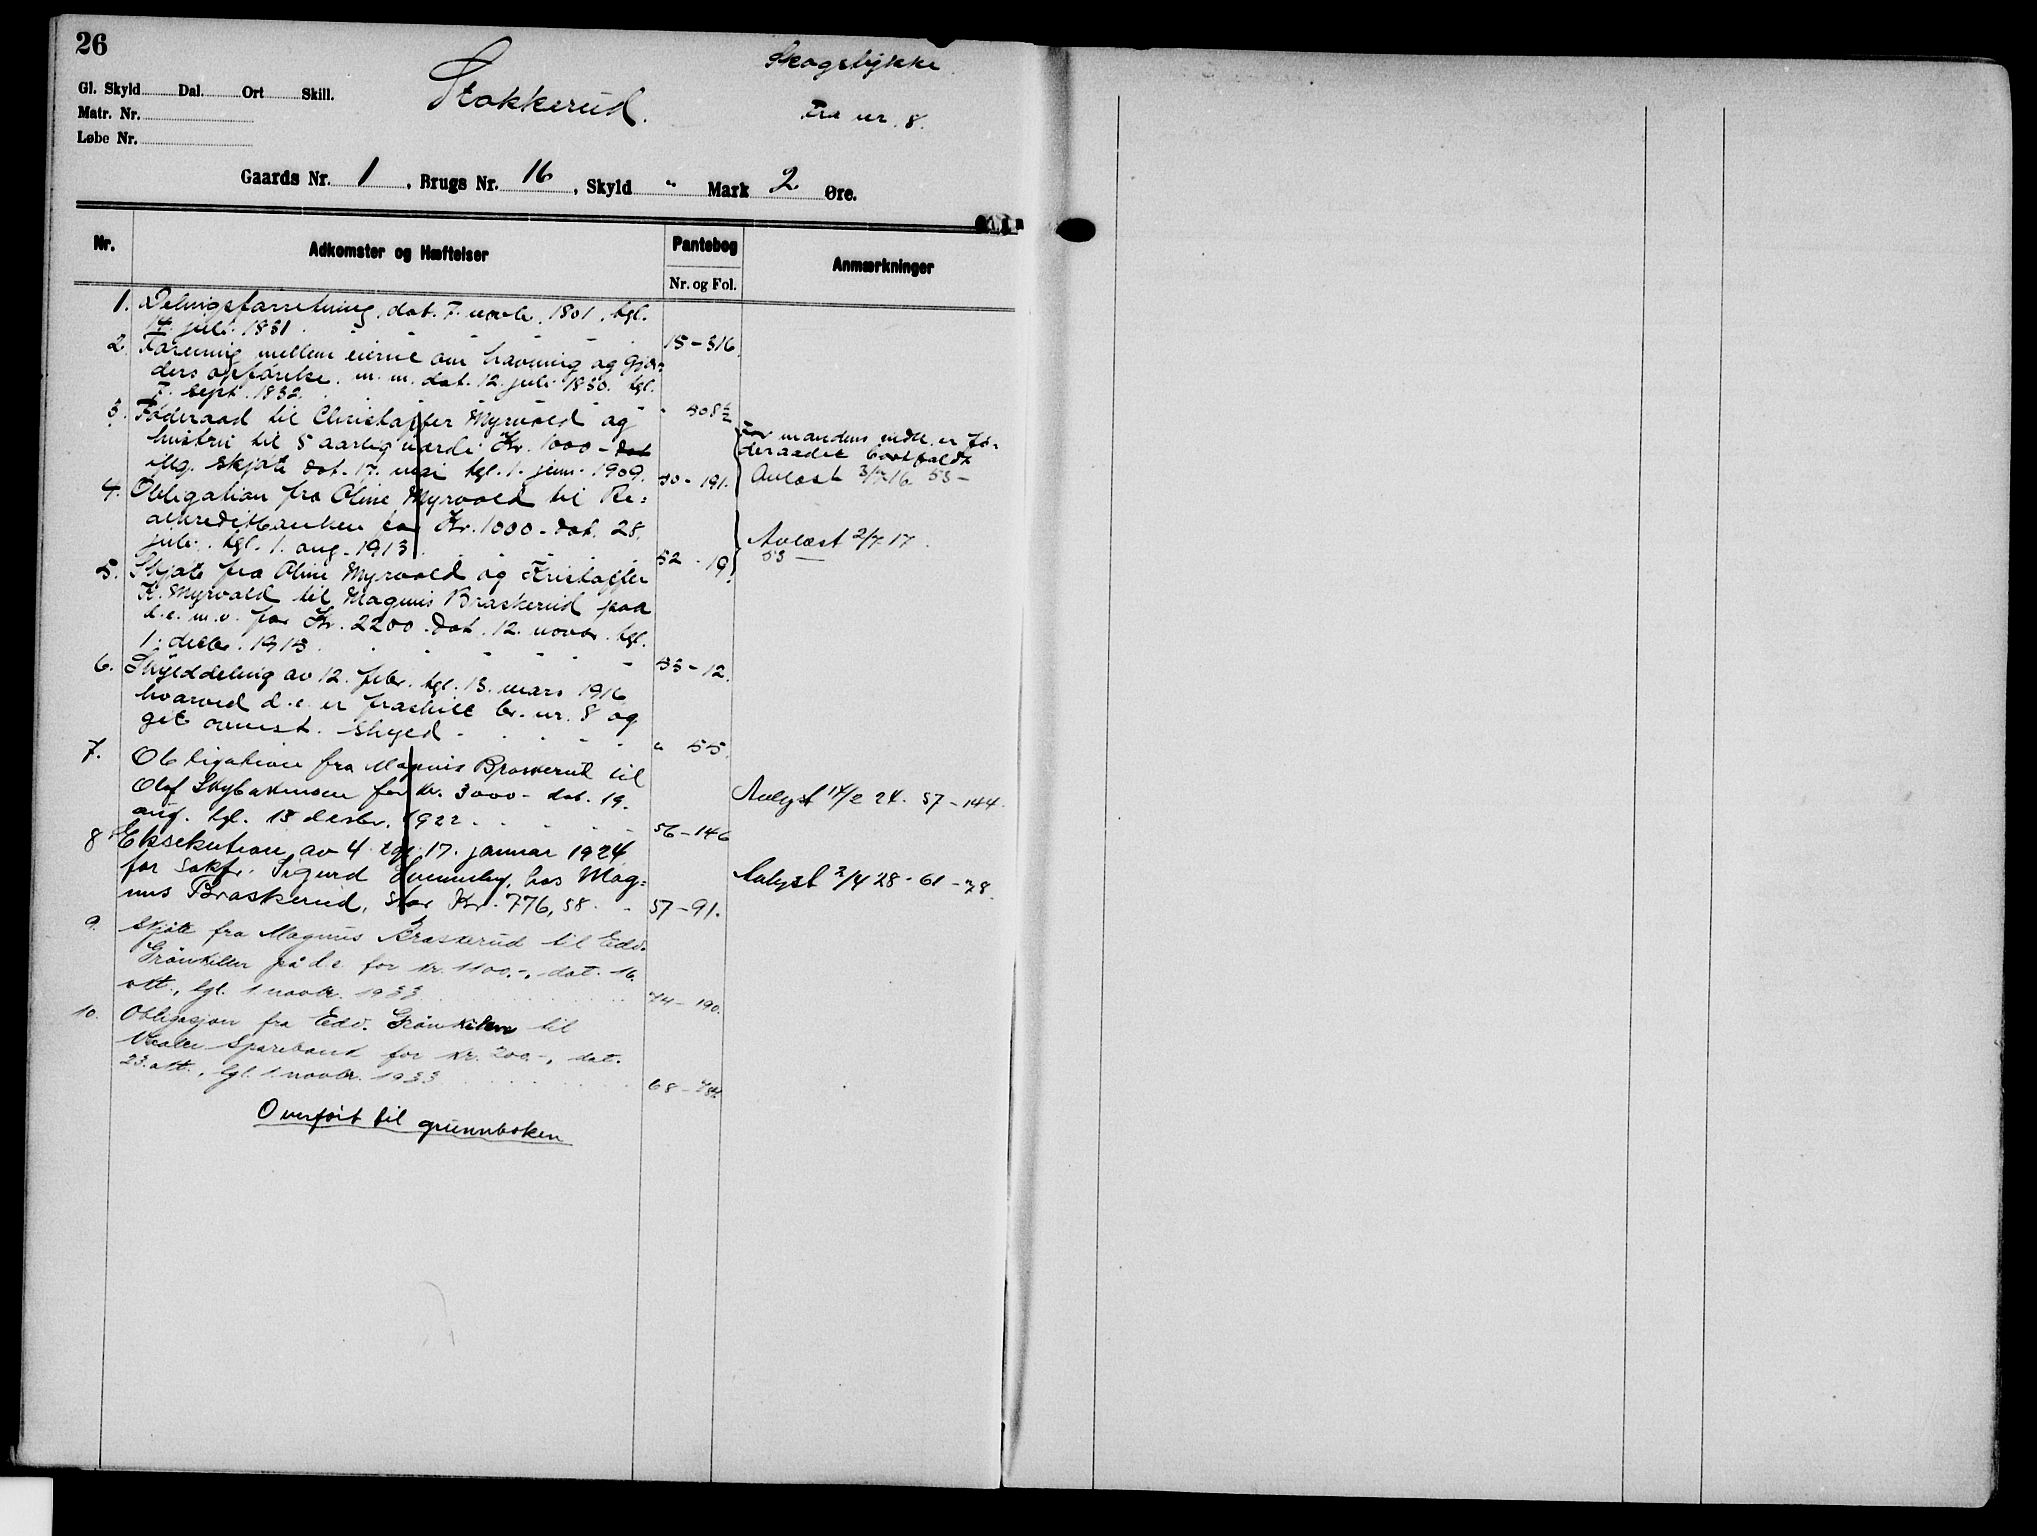 26
Gl. Skyld Dal. Ort Skill.
Matr. Nr.
Løbe Nr.
Stokkerud.
Skogstykke
Fra nr. 8.
Gaards Nr. 1, Brugs Nr. 16, Skyld " Mark 2 Øre.
Nr. Adkomster og Hæftelser Pantebog Anmærkninger
Nr. og Fol.
1. Delingsforretning, dat. 7. novbr. 1801, tgl.
14. juli 1831. 15 - 316.
2. Forening mellem eierne om havning og gjær-
ders opførelse m. m. dat. 12. juli 1830. tgl.
7. sept. 1832. " 508
3. Føderaad til Christoffer Myrvold og
hustru til 5 aarlig værdi Kr. 1000 - dat
iflg. skjøte dat. 17. mai tgl. 1. juni 1909. 30 - 191.
For mandens vedk. er fø-
deraadet bortfaldt
Avlæst 3/7 16 53 -
4. Obligation fra Oline Myrvold til Re-
alkreditbanken for Kr. 1000 - dat. 28.
juli tgl. 1. aug. 1913. 32 - 19.
Avlæst 2/7 17.
53 -
5. Skjøte fra Oline Myrvold og Kristoffer
K. Myrvold til Magnus Braskerud paa
d.e. m.v. for Kr. 2200 dat. 12. novbr. tgl.
1. decbr. 1913. 33 - 12.
6. Skylddeling av 12. febr. tgl. 13. mars 1916
hvorved d.e. er fraskilt br. nr. 8 og
git ovennst. skyld " 55.
7. Obligation fra Magnus Braskerud til
Olof Skybakmoen for kr. 3000 - dat. 19.
aug. tgl. 15 desbr. 1922. 56 - 146
Avlyst 14/2 24. 57 - 144.
8 Eksekution av 4. tgl. 17. januar 1924
for sakf. Sigurd Svenneby, hos Mag-
nus Braskerud, stor Kr. 776,58. 57 - 91.
Avlyst 2/4 28 - 61 - 78.
9. Skjøte fra Magnus Braskerud til Edv.
Grønkilen på d.e. for kr. 1100.-, dat. 16.
okt., tgl. 1 novbr. 1933 74 - 190.
10. Obligasjon fra Edv. Grønkilen til
Vaaler Sparebank for kr. 200.-, dat.
23. okt., tgl. 1. novbr. 1933 68 -
Overført til grunnboken